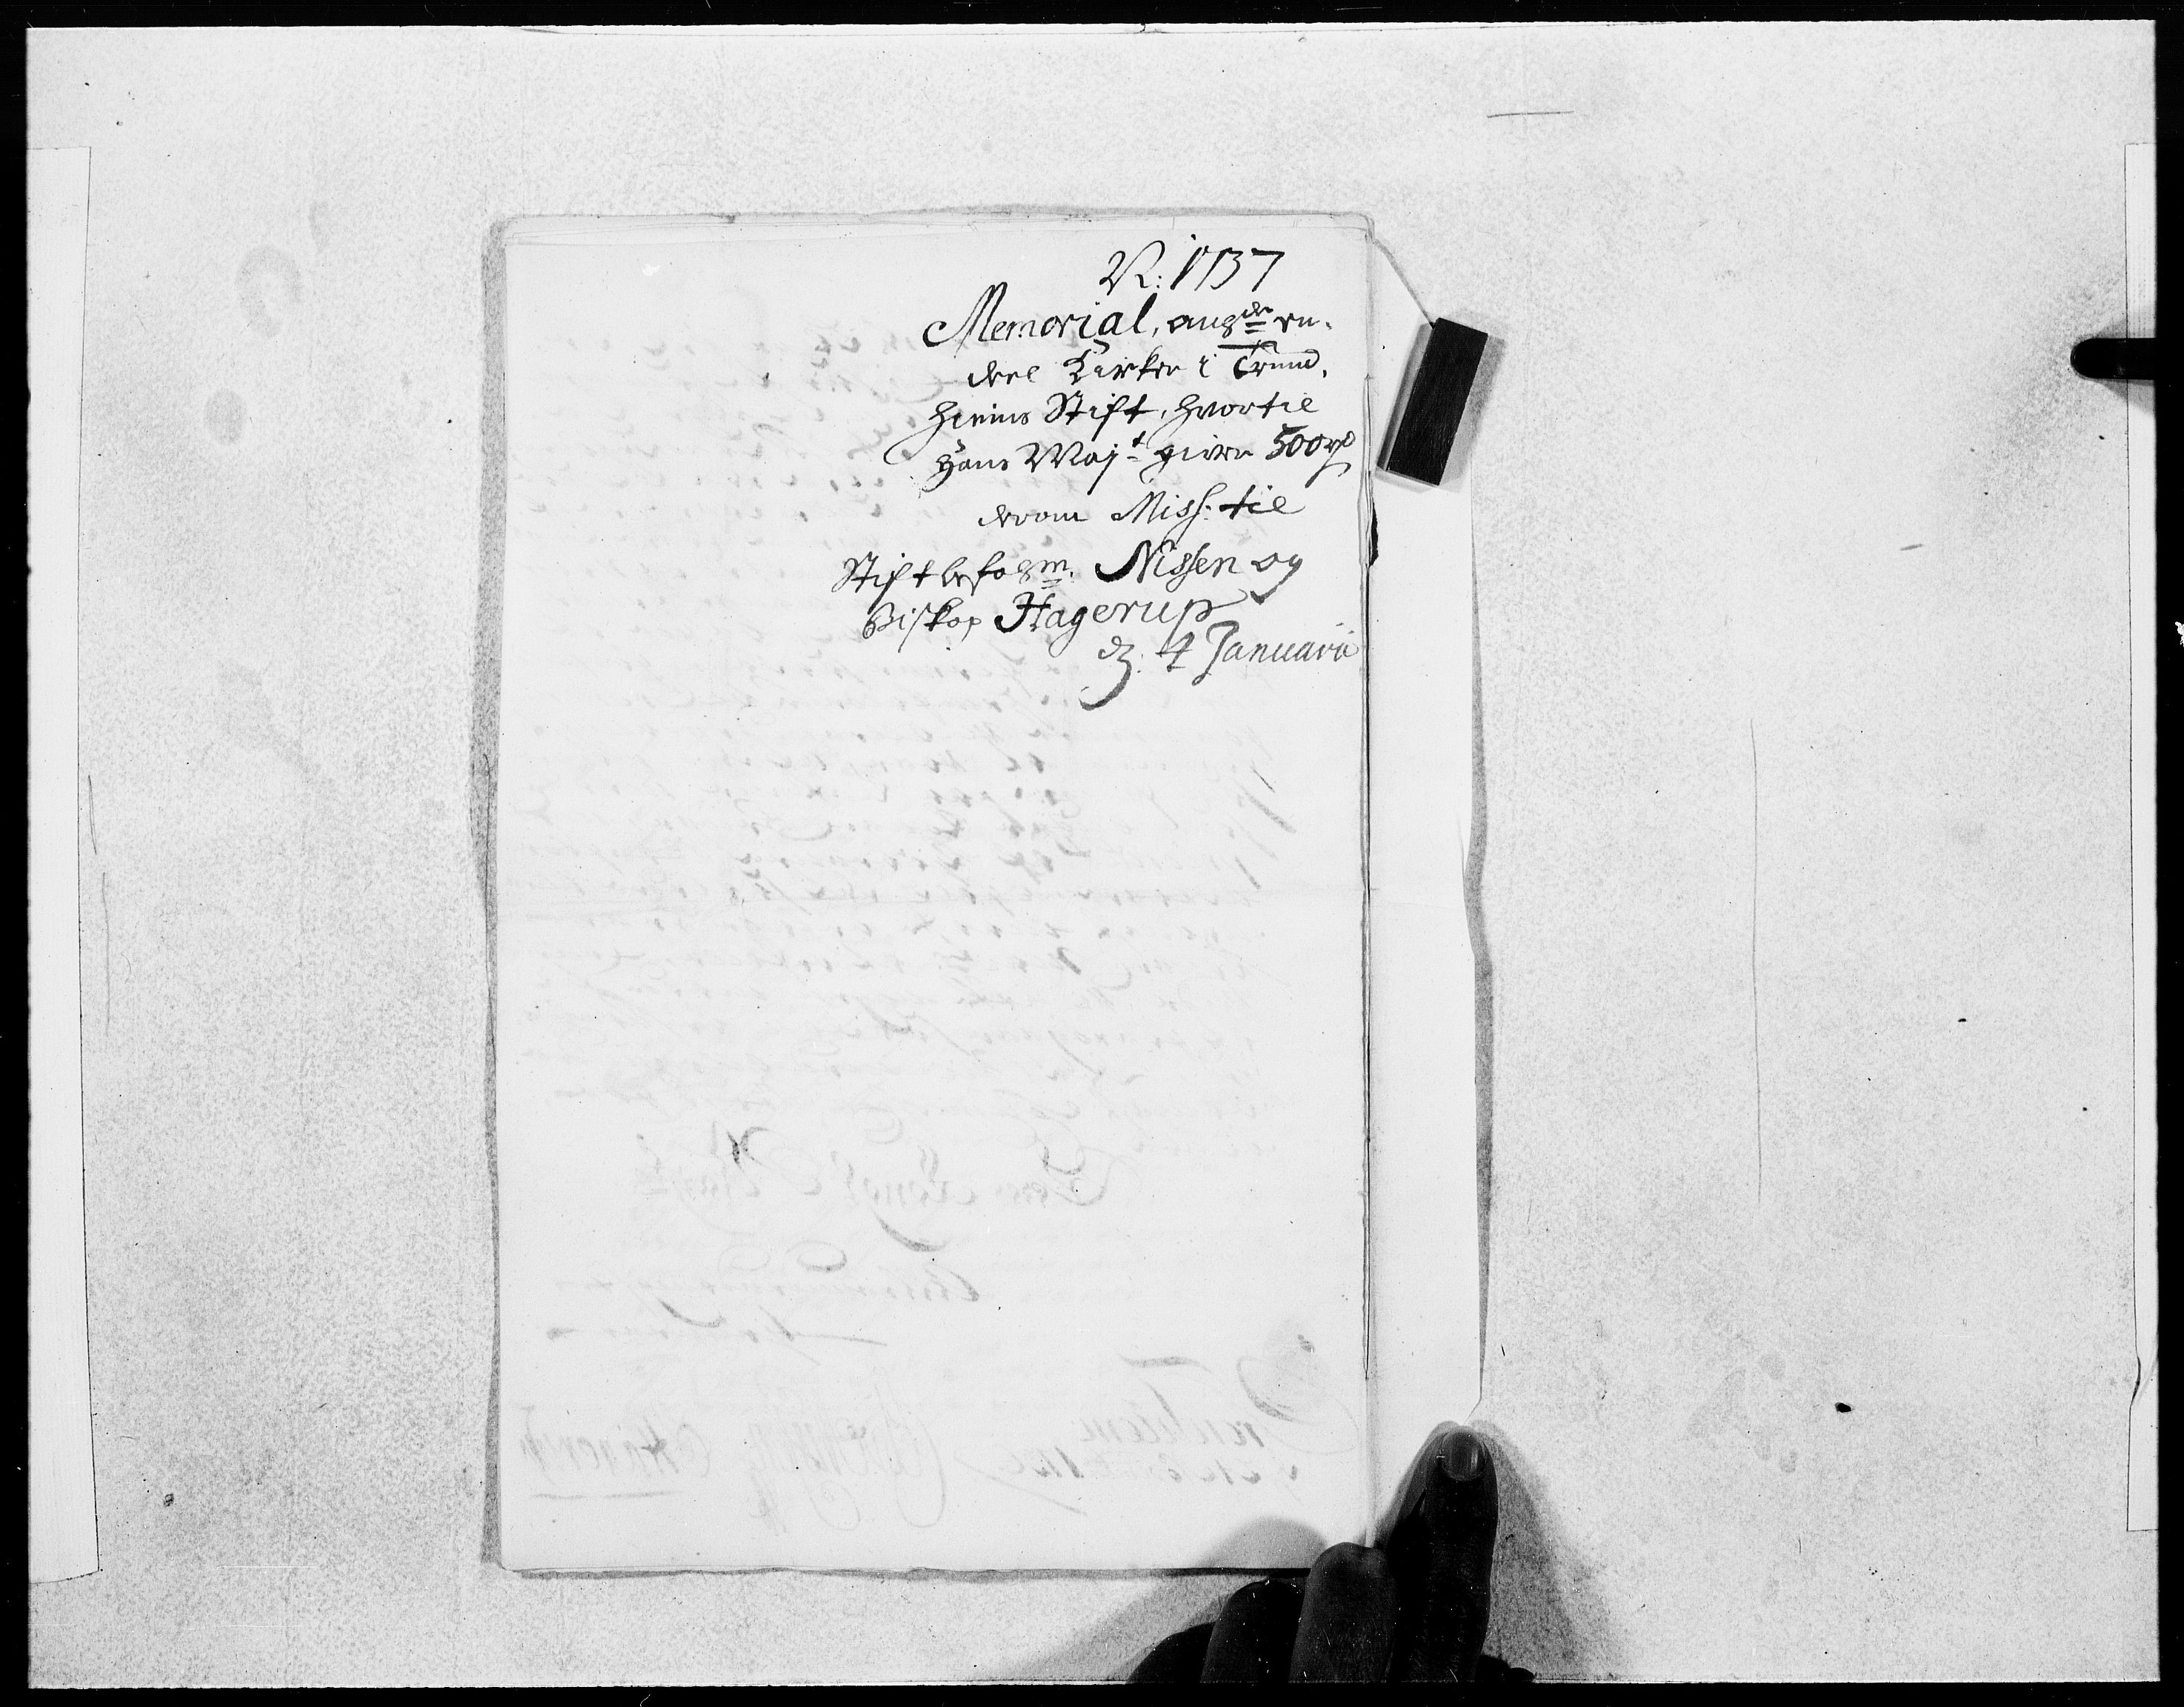 N: 1737
Memorial, angde en-
deel Kirker i Trund-
hiems Stift, hvortil
Hans Mayt giver 500 rd
derom Miss: til
Stiftbefalgm. Nissen og
Biskop Hagerup
d: 4 Januarii